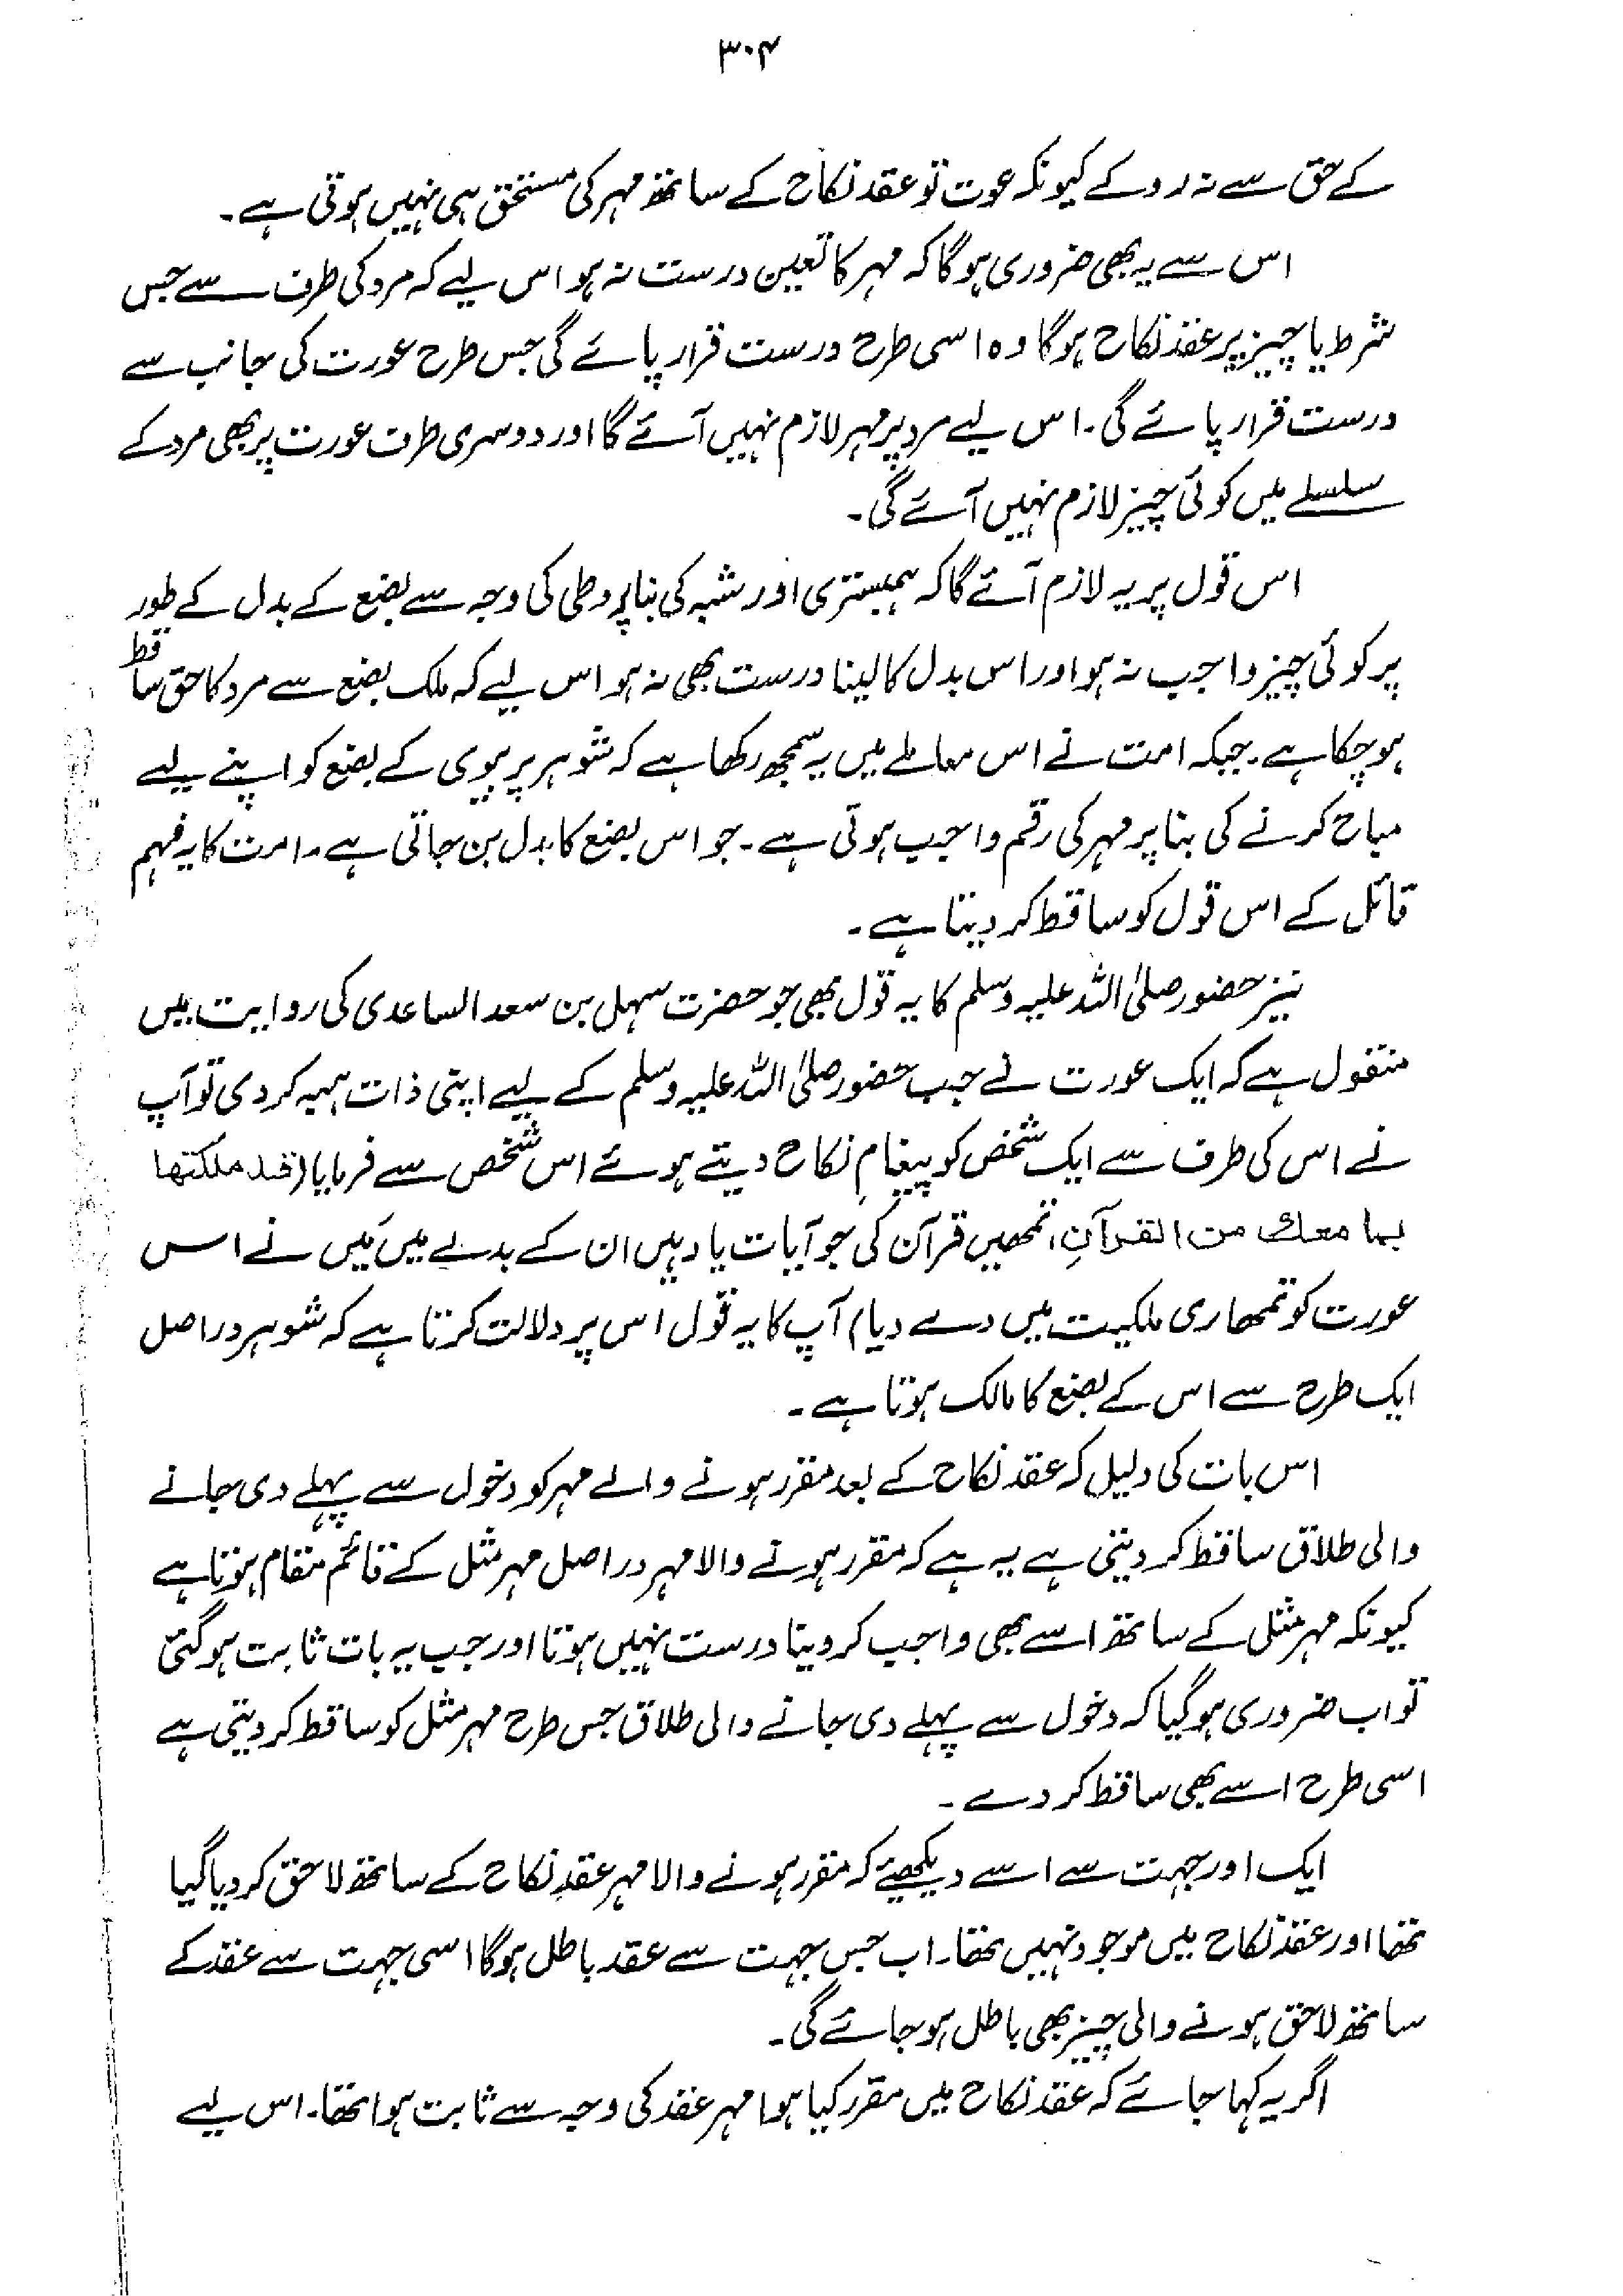 ۳۰۴
کے حق سے نہ روکے کیونکہ عوت تو عقد نکاح کے ساتھ مہر کی مستحق ہی نہیں ہوتی ہے۔
اس سے یہ بھی ضروری ہوگا کہ مہر کا تعین درست نہ ہو اس لیے کہ مرد کی طرف سے جس
شرط یا چیز پر عقد نکاح ہوگا وہ اسی طرح درست قرار پائے گی جس طرح عورت کی جانب سے
درست قرار پائے گی۔ اس لیے مرد پر مہر لازم نہیں آئے گا اور دوسری طرف عورت پر بھی مرد کے
سلسلے میں کوئی چیز لازم نہیں آئے گی۔
اس قول پر یہ لازم آئے گا کہ ہمبستری اور شبہ کی بنا پر وطی کی وجہ سے بضع کے بدل کے طور
پر کوئی چیز واجب نہ ہو اور اس بدل کا لینا درست بھی نہ ہو اس لیے کہ ملک بضع سے مرد کا حق ساقط
ہو چکا ہے۔ جبکہ امت نے اس معاملے میں یہ سمجھ رکھا ہے کہ شوہر پر بیوی کے بضع کو اپنے لیے
مباح کرنے کی بنا پر مہر کی رقم واجب ہوتی ہے۔ جو اس بضع کا بدل بن جاتی ہے۔ امت کا یہ فہم
قائل کے اس قول کو ساقط کر دیتا ہے۔
نیز حضور صلی اللہ علیہ وسلم کا یہ قول بھی جو حضرت سہل بن سعد الساعدی کی روایت میں
منقول ہے کہ ایک عورت نے جب حضور صلی اللہ علیہ وسلم کے لیے اپنی ذات ہبہ کر دی تو آپ
نے اس کی طرف سے ایک شخص کو پیغامِ نکاح دیتے ہوئے اس شخص سے فرمایا (قد ملکتھا
بما معک من القرآنِ، تمھیں قرآن کی جو آیات یاد ہیں ان کے بدلے میں مَیں نے اس
عورت کو تمھاری ملکیت میں دے دیا) آپ کا یہ قول اس پر دلالت کرتا ہے کہ شوہر دراصل
ایک طرح سے اس کے بضع کا مالک ہوتا ہے۔
اس بات کی دلیل کہ عقد نکاح کے بعد مقرر ہونے والے مہر کو دخول سے پہلے دی جانے
والی طلاق ساقط کر دیتی ہے یہ ہے کہ مقرر ہونے والا مہر دراصل مہر مثل کے قائم مقام ہوتا ہے
کیونکہ مہر مثل کے ساتھ اسے بھی واجب کر دینا درست نہیں ہوتا اور جب یہ بات ثابت ہو گئی
تو اب ضروری ہو گیا کہ دخول سے پہلے دی جانے والی طلاق جس طرح مہر مثل کو ساقط کر دیتی ہے
اسی طرح اسے بھی ساقط کر دے۔
ایک اور جہت سے اسے دیکھیئے کہ مقرر ہونے والا مہر عقدِ نکاح کے ساتھ لاحق کر دیا گیا
تھا اور عقد نکاح میں موجود نہیں تھا۔ اب جس جہت سے عقد باطل ہوگا اسی جہت سے عقد کے
ساتھ لاحق ہونے والی چیز بھی باطل ہو جائے گی۔
اگر یہ کہا جائے کہ عقد نکاح میں مقرر کیا ہوا مہر عقد کی وجہ سے ثابت ہوا تھا۔ اس لیے